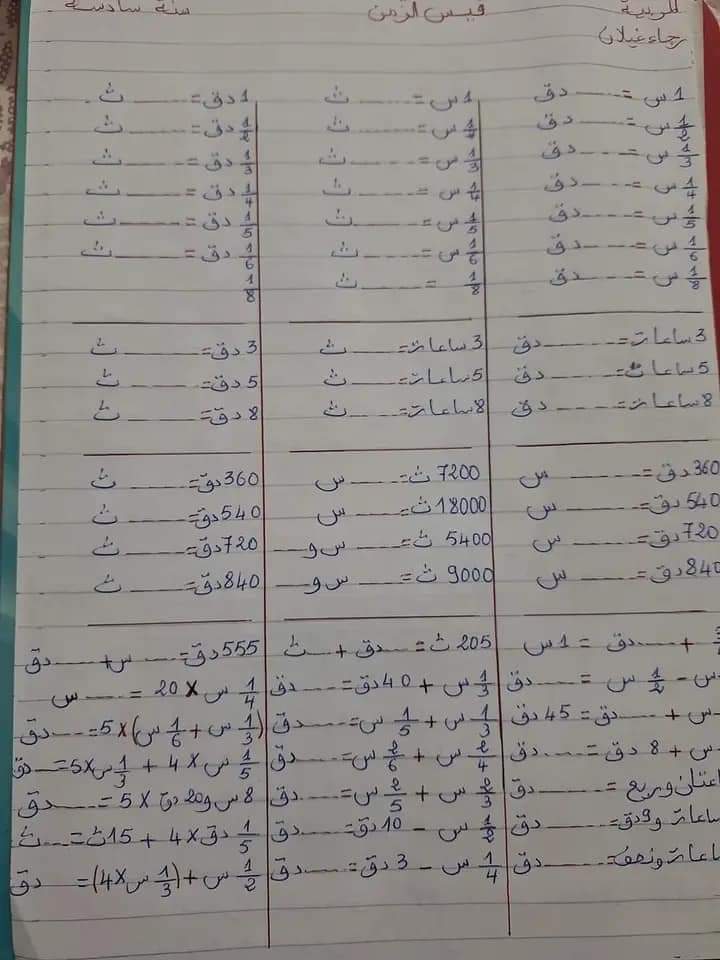 المربية قيس الزمن سنة سادسة
رجاء غيلان
1 س = ------ دق
1/2 س = ------ دق
1/3 س = ------ دق
1/4 س = ------ دق
1/5 س = ------ دق
1/6 س = ------ دق
1/8 س = ------ دق
3 ساعات = ------ دق
5 ساعات = ------ دق
8 ساعات = ------ دق
360 دق = ------ س
540 دق = ------ س
720 دق = ------ س
840 دق = ------ س
+ ------ دق = 1 س
س - 1/2 س = ------ دق
س + ------ دق = 45 دق
س + 8 دق = ------ دق
وربع = ------ دق
و 9 دق = ------ دق
ونصف = ------ دق
1 س = ------ ث
1/2 س = ------ ث
1/3 س = ------ ث
1/4 س = ------ ث
1/5 س = ------ ث
1/6 س = ------ ث
1/8 = ------ ث
3 ساعات = ------ ث
5 ساعات = ------ ث
8 ساعات = ------ ث
7200 ث = ------ س
18000 ث = ------ س
5400 ث = ------ س و ------
9000 ث = ------ س و ------
205 ث = ------ دق + ------ ث
1/3 س + 40 دق = ------ دق
1/3 س + 1/5 س = ------ دق
2/4 س + 2/6 س = ------ دق
2/3 س + 2/5 س = ------ دق
1/2 س - 10 دق = ------ دق
1/4 س - 3 دق = ------ دق
1 دق = ------ ث
1/2 دق = ------ ث
1/3 دق = ------ ث
1/4 دق = ------ ث
1/5 دق = ------ ث
1/6 دق = ------ ث
1/8
3 دق = ------ ث
5 دق = ------ ث
8 دق = ------ ث
360 دق = ------ ث
540 دق = ------ ث
720 دق = ------ ث
840 دق = ------ ث
555 دق = ------ س + ------ دق
1/4 س × 20 = ------ س
(1/3 س + 1/6 س) × 5 = ------ دق
1/5 س × 4 + 1/3 س × 5 = ------ دق
8 س و 20 دق × 5 = ------ دق
1/5 دق × 4 + 15 ث = ------ ث
1/2 س + (1/3 س × 4) = دق